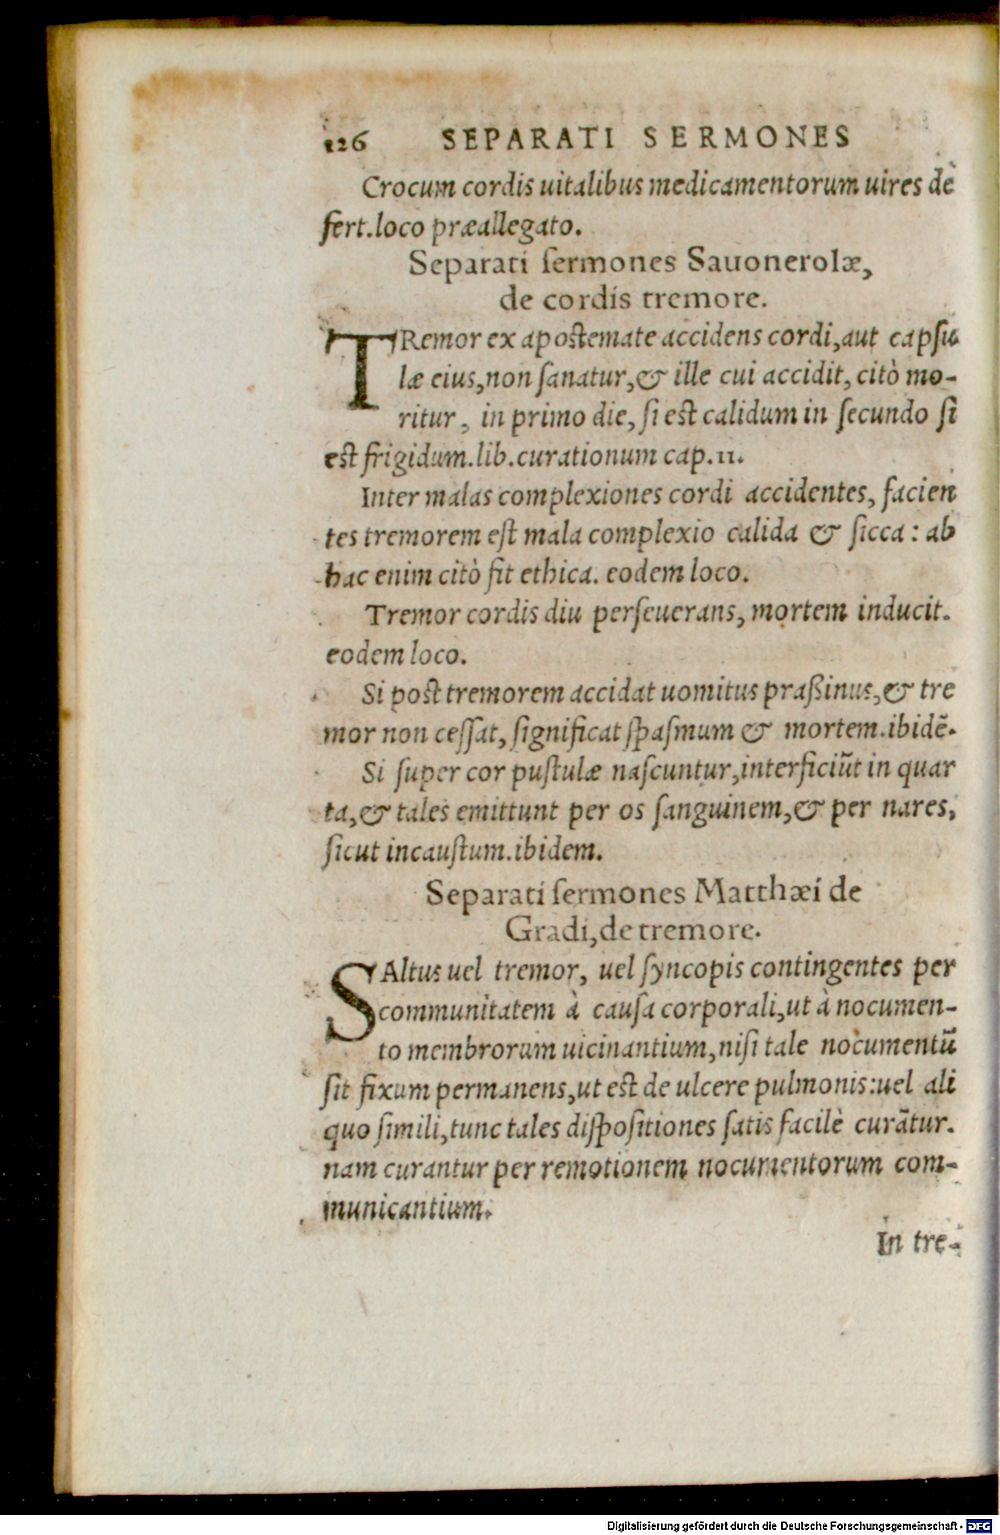 126 SEPARATI SERMONES
Crocum cordis uitalibus medicamentorum uires dè
fert.loco præallegato.
Separati sermones Sauonerolæ,
de cordis tremore.
TRemor ex apostemate accidens cordi,aut capsu
læ eius,non sanatur,& ille cui accidit, citò mo-
ritur, in primo die, si est calidum in secundo si
est frigidum.lib.curationum cap.11.
Inter malas complexiones cordi accidentes, facien
tes tremorem est mala complexio calida & sicca : ab
hac enim citò fit ethica. eodem loco.
Tremor cordis diu perseuerans, mortem inducit.
eodem loco.
Si post tremorem accidat uomitus praßinus,& tre
mor non cessat, significat spasmum & mortem.ibidē.
Si super cor pustulæ nascuntur,interficiũt in quar
ta,& tales emittunt per os sanguinem,& per nares,
sicut incaustum.ibidem.
Separati sermones Matthæi de
Gradi,de tremore.
SAltus uel tremor, uel syncopis contingentes per
communitatem à causa corporali,ut à nocumen-
to membrorum uicinantium,nisi tale nocumentũ
sit fixum permanens,ut est de ulcere pulmonis:uel ali
quo simili,tunc tales dispositiones satis facilè curãtur.
nam curantur per remotionem nocumentorum com-
municantium.
In tre-
Digitalisierung gefördert durch die Deutsche Forschungsgemeinschaft - DFG